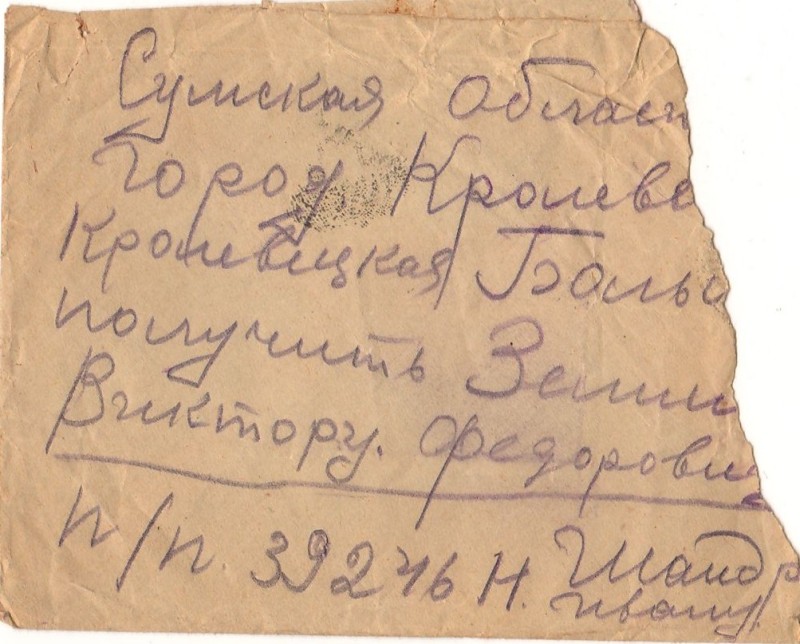 Сумская област
Город Кролеве
Кролевецкая Больн
получить Зелин
Виктору. Федорович
п/п. 39246 Н. Шандр
ивану.